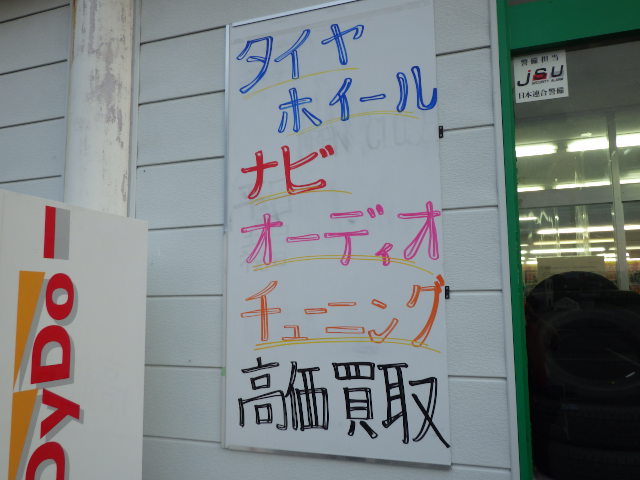 タイヤ
ホイール
ナビ
オーディオ
チューニング
高価買取
警備担当
JSU
SECURITY ALARM
日本連合警備
DyDo